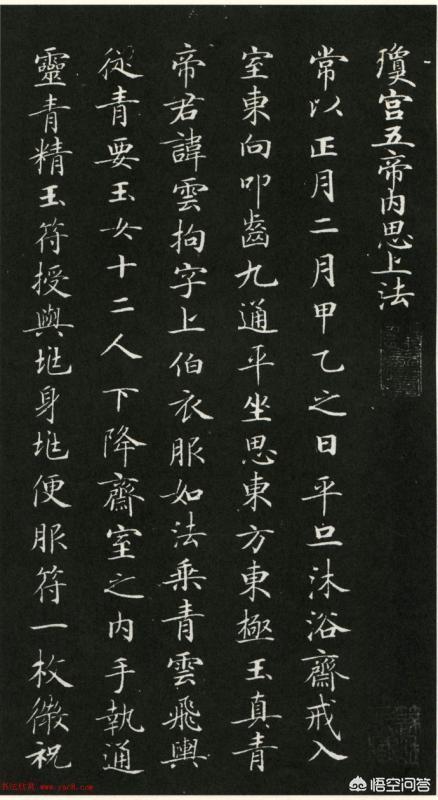 瓊宮五帝內思上法
常以正月二月甲乙之日平旦沐浴齋戒入
室東向叩齒九通平坐思東方東極玉真青
帝君諱雲拘字上伯衣服如法乘青雲飛輿
從青要玉女十二人下降齋室之內手執通
靈青精玉符授與𡉏身𡉏便服符一枚微祝
书法欣赏 www.yac8.com
悟空问答